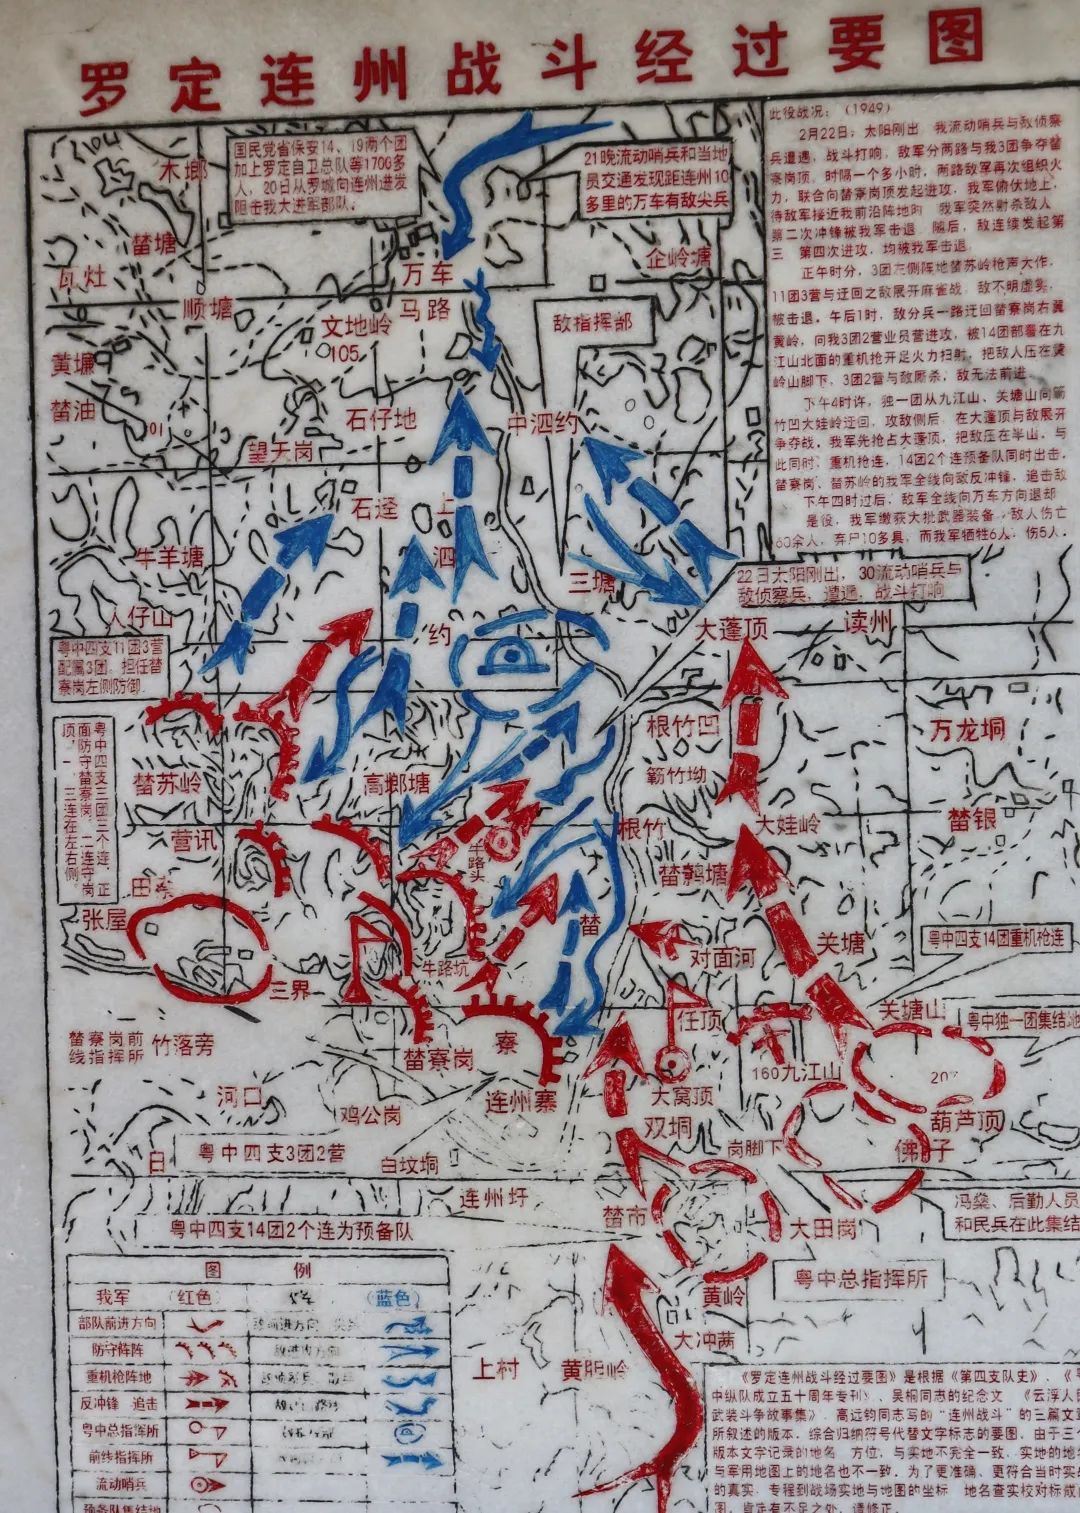 罗定连州战斗经过要图
国民党省保安14、19两个团
加上罗定自卫总队等1700多
人，20日从罗城向连州进发
阻击我大进军部队。
21晚流动哨兵和当地
员交通发现距连州10
多里的万车有敌尖兵
此役战况：（1949）
2月22日：太阳刚出，我流动哨兵与敌侦察
兵遭遇，战斗打响，敌军分两路与我3团争夺
寮岗顶，时隔一个多小时，两路敌军再次组织火
力，联合向榃寮岗顶发起进攻，我军俯伏地上，
待敌军接近我前沿阵地时，我军突然射杀敌人
第二次冲锋被我军击退，随后，敌连续发起第
三 第四次进攻，均被我军击退。
正午时分，3团左侧阵地榃苏岭枪声大作，
11团3营与迂回之敌展开麻雀战，敌不明虚实，
被击退。午后1时，敌分兵一路迂回榃寮岗右
黄岭，向我3团2营业员营进攻，被14团部署在九
江山北面的重机抢开足火力扫射，把敌人压在黄
岭山脚下，3团2营与敌厮杀，敌无法前进。
下午4时许，独一团从九江山、关塘山向簕
竹凹大娃岭迂回，攻敌侧后，在大蓬顶与敌展开
争夺战，我军先抢占大蓬顶，把敌压在半山，与
此同时，重机抢连，14团2个连预备队同时出击，
榃寮岗、榃苏岭的我军全线向敌反冲锋，追击敌
下午四时过后，敌军全线向万车方向退却
是役，我军缴获大批武器装备，敌人伤亡
60余人，弃尸10多具，而我军牺牲6人，伤5人。
木塱
榃塘
瓦灶
顺塘
万车
马路
企岭塘
敌指挥部
文地岭
105
黄塘
榃油
101
石仔地
望天岗
中泗约
石迳
上
泗
约
牛羊塘
人仔山
三塘
22日太阳刚出，30流动哨兵与
敌侦察兵，遭遇，战斗打响
大蓬顶
读州
粤中四支11团3营
配属3团，担任榃
寮岗左侧防御
粤中四支三团三个连，正
面防守榃寮岗，二连守岗
顶，一、三连在左右侧。
榃苏岭
高塱塘
根竹凹
簕竹坳
万龙垌
营讯
牛路头
根竹
大娃岭
榃银
田寮
榃鹩塘
张屋
榃
对面河
关塘
粤中四支14团重机枪连
三界
牛路坑
任顶
关塘山
粤中独一团集结地
榃寮岗前
线指挥所
竹落旁
榃寮岗
寮
160九江山
207
河口
鸡公岗
连州寨
大窝顶
双垌
葫芦顶
岗脚下
佛子
粤中四支3团2营
白坟垌
连州圩
榃市
大田岗
冯燊、后勤人员
和民兵在此集结
粤中四支14团2个连为预备队
粤中总指挥所
黄岭
大冲茜
上村
黄胆岭
图 例
我军 （红色） （蓝色）
部队前进方向
防守阵阵
重机枪阵地
反冲锋 追击
粤中总指挥所
前线指挥所
流动哨兵
预备队集结地
《罗定连州战斗经过要图》是根据《第四支队史》、《粤
中纵队成立五十周年专刊》、吴桐同志的纪念文 《云浮人民
武装斗争故事集》、高远钧同志写的“连州战斗”的三篇文章
所叙述的版本，综合归纳符号代替文字标志的要图，由于三个
版本文字记录的地名，方位，与实地不完全一致，实地的地名
与军用地图上的地名也不一致，为了更准确、更符合当时实战
的真实，专程到战场实地与地图的坐标，地名查实校对标成
图，肯定有不足之处，请修正。